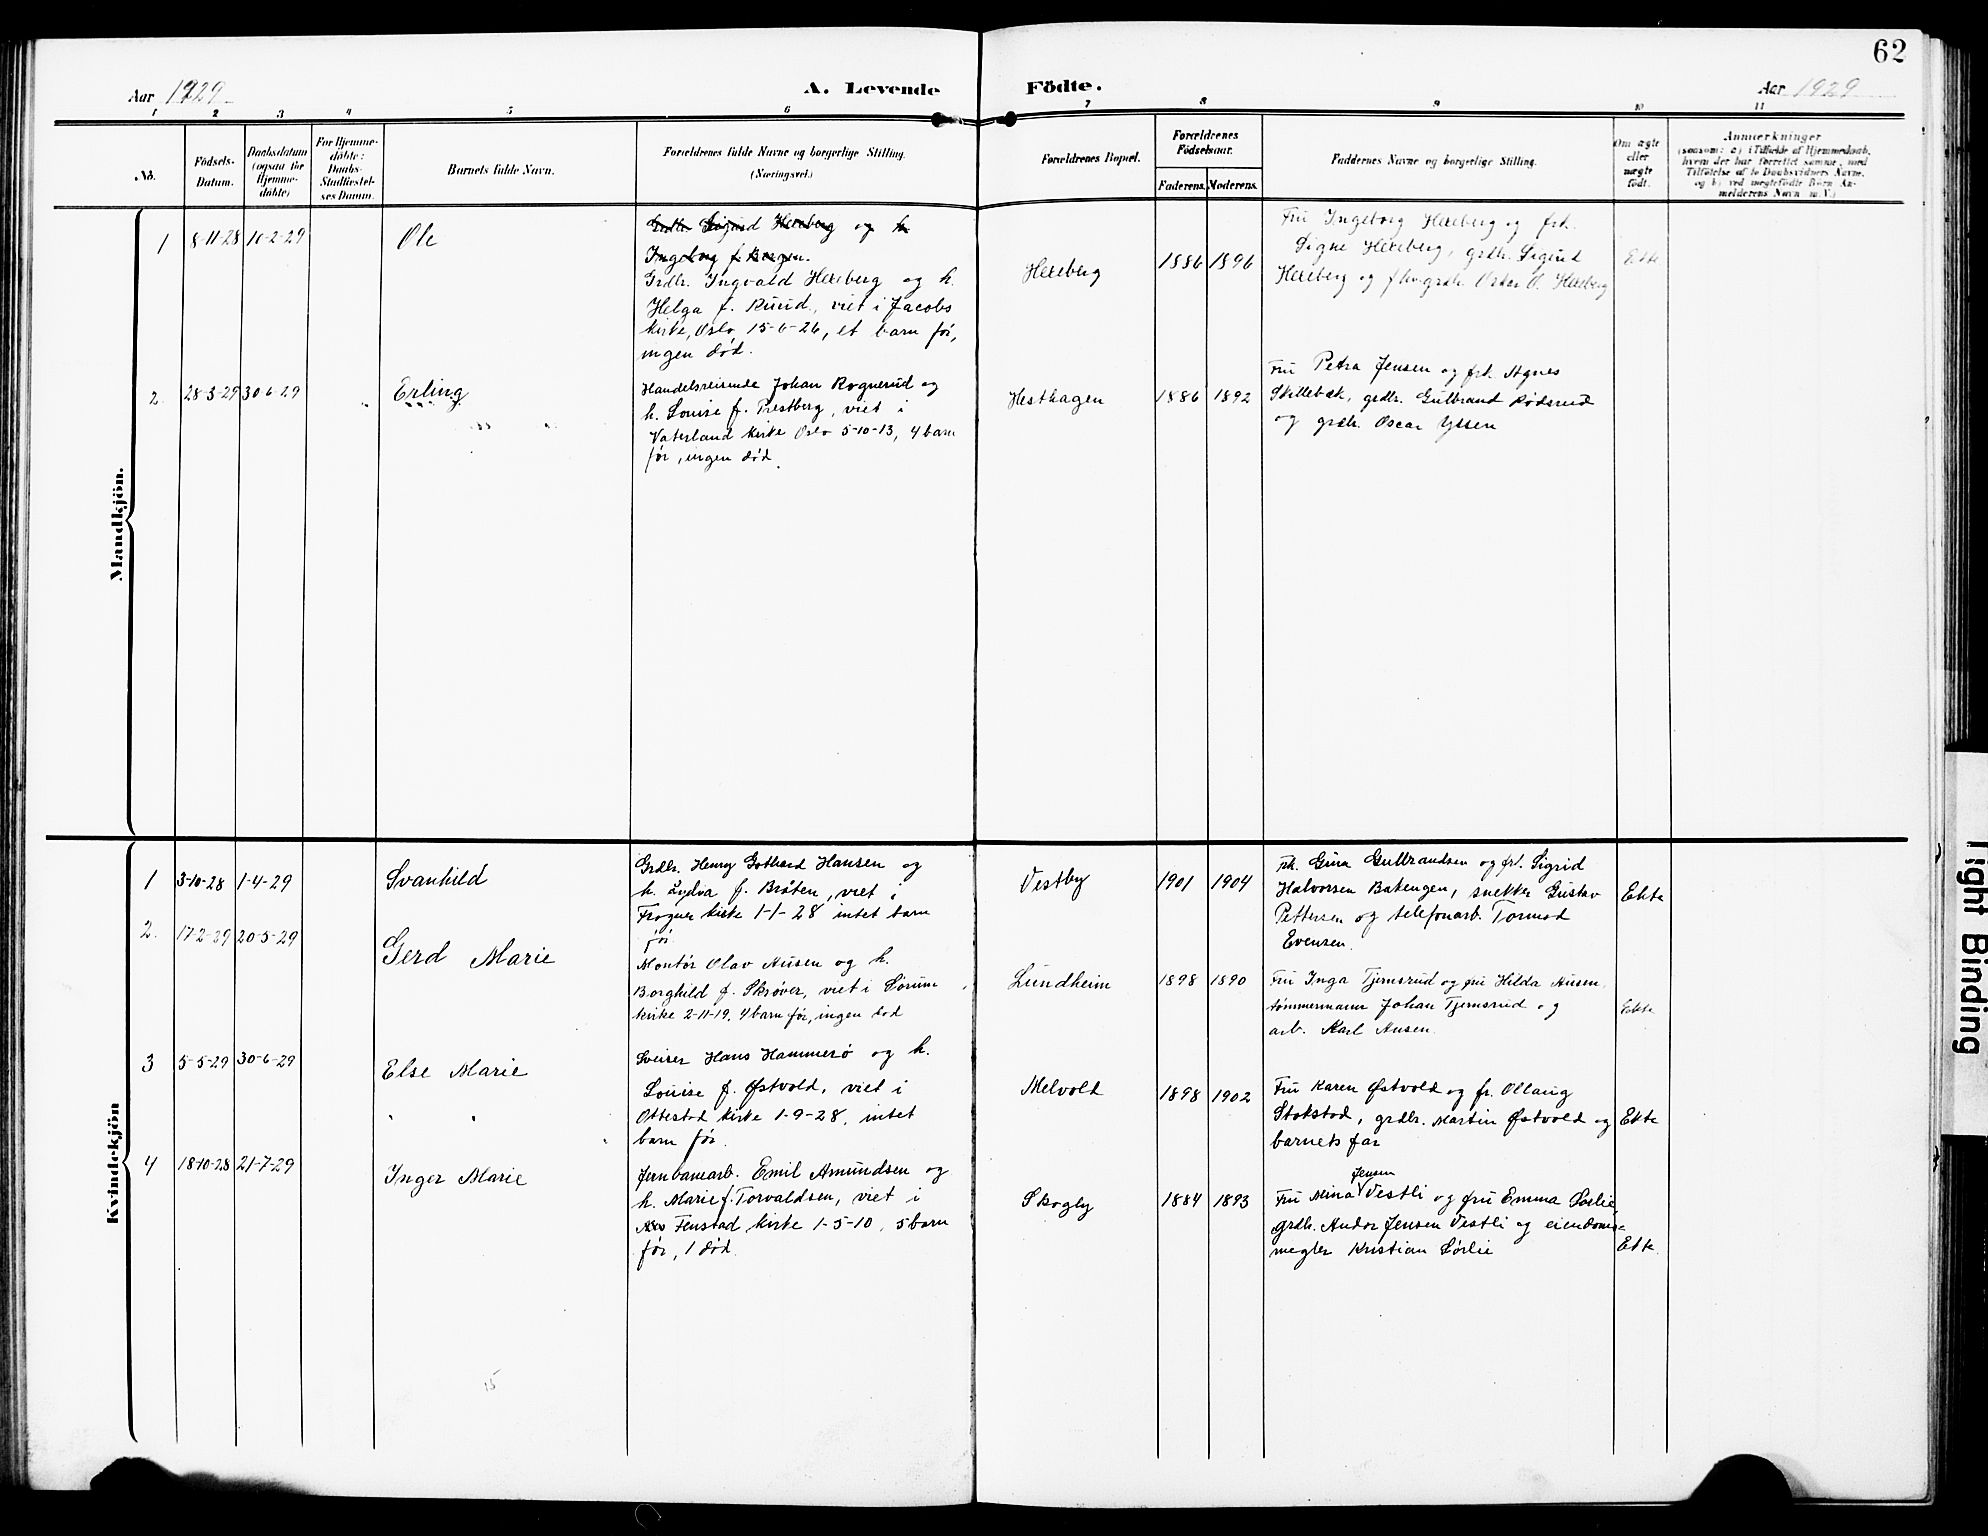 62
Aar 1929
A. Levende
Födte.
Aar 1929
1 2 3 4 5 6 7 8 9 10 11
No.
Födsels-
Datum.
Daabsdatum
(ogsaa for
Hjemme-
döbte)
For Hjemme-
döbte:
Daabs-
Stadfæstel-
ses Datum.
Barnets fulde Navn.
Forældrenes fulde Navne og borgerlige Stilling.
(Næringsvei.)
Forældrenes Bopæl.
Forældrenes
Födselsaar.
Faderens. Moderens.
Faddernes Navne og borgerlige Stilling.
Om ægte
eller
uægte
födt.
Anmerkninger
(saasom: a) i Tilfælde af Hjemmedaab,
hvem der har forrettet samme, med
Tilföielse af to Daabsvidners Navne,
og b) ved uægtefödte Börn An-
melderens Navn m. V.)
Mandkjön.
1 8-11-28 10-2-29 Ole
Grdbr. Sigurd Hexeberg og h.
Ingeborg f. Borgen.
Grdbr. Ingvald Hexeberg og h.
Helga f. Ruud, viet i Jacobs
kirke, Oslo 15-6-26, et barn før,
ingen død.
Hexeberg 1886 1896
Fru Ingeborg Hexeberg og frk.
Signe Hexeberg, grdbr. Sigurd
Hexeberg og Oskar O. Hexeberg
Ekte
2. 28-3-29 30-6-29 Erling
Handelsreisende Johan Rognerud og
h. Louise f. Prestberg, viet i
Vaterland kirke Oslo 5-10-13, 4 barn
før, ingen død.
Hesthagen 1886 1892
Fru Petra Jensen og frk. Agnes
Skillebæk, grdbr. Gulbrand Rødsrud
og grdbr. Oscar Yssen
Kvindekjön
1 3-10-28 1-4-29 Svanhild
Grdbr. Henry Gothard Hansen og
h. Lydva f. Bråten, viet i
Frogner kirke 1-1-28 intet barn
før.
Vestby 1901 1904
Frk. Gina Gulbrandsen og frk. Sigrid
Halvorsen Bakengen, snekker Gustav
Pettersen og telefonarb. Tormod
Evensen.
Ekte
2. 17-2-29 20-5-29 Gerd Marie
Montør Olav Ausen og h.
Borghild f. Skrøver, viet i Sørum
kirke 2-11-19, 4 barn før, ingen død
Lundheim 1898 1890
Fru Inga Tjernsrud og fru Hilda Ausen,
tømmermann Johan Tjernsrud og
arb. Karl Ausen.
Ekte
3 5-5-29 30-6-29 Else Marie
Sveiser Hans Hammerø og h.
Louise f. Østvold, viet i
Ottestad kirke 1-9-28, intet
barn før.
Melvold 1898 1902
Fru Karen Østvold og fr. Ollaug
Stokstad, grdbr. Martin Østvold og
barnets far
Ekte
4 18-10-28 21-7-29 Inger Marie
Jernbanearb. Emil Amundsen og
h. Marie f. Torvaldsen, viet i
Nes Fenstad kirke 1-5-10, 5 barn
før, 1 død.
Skogly 1884 1893
Jensen
Fru Mina Vestli og fru Emma Sørlie,
grdbr. Andor Jensen Vestli og eiendoms-
megler Kristian Sørlie
Ekte
15
Tight Binding